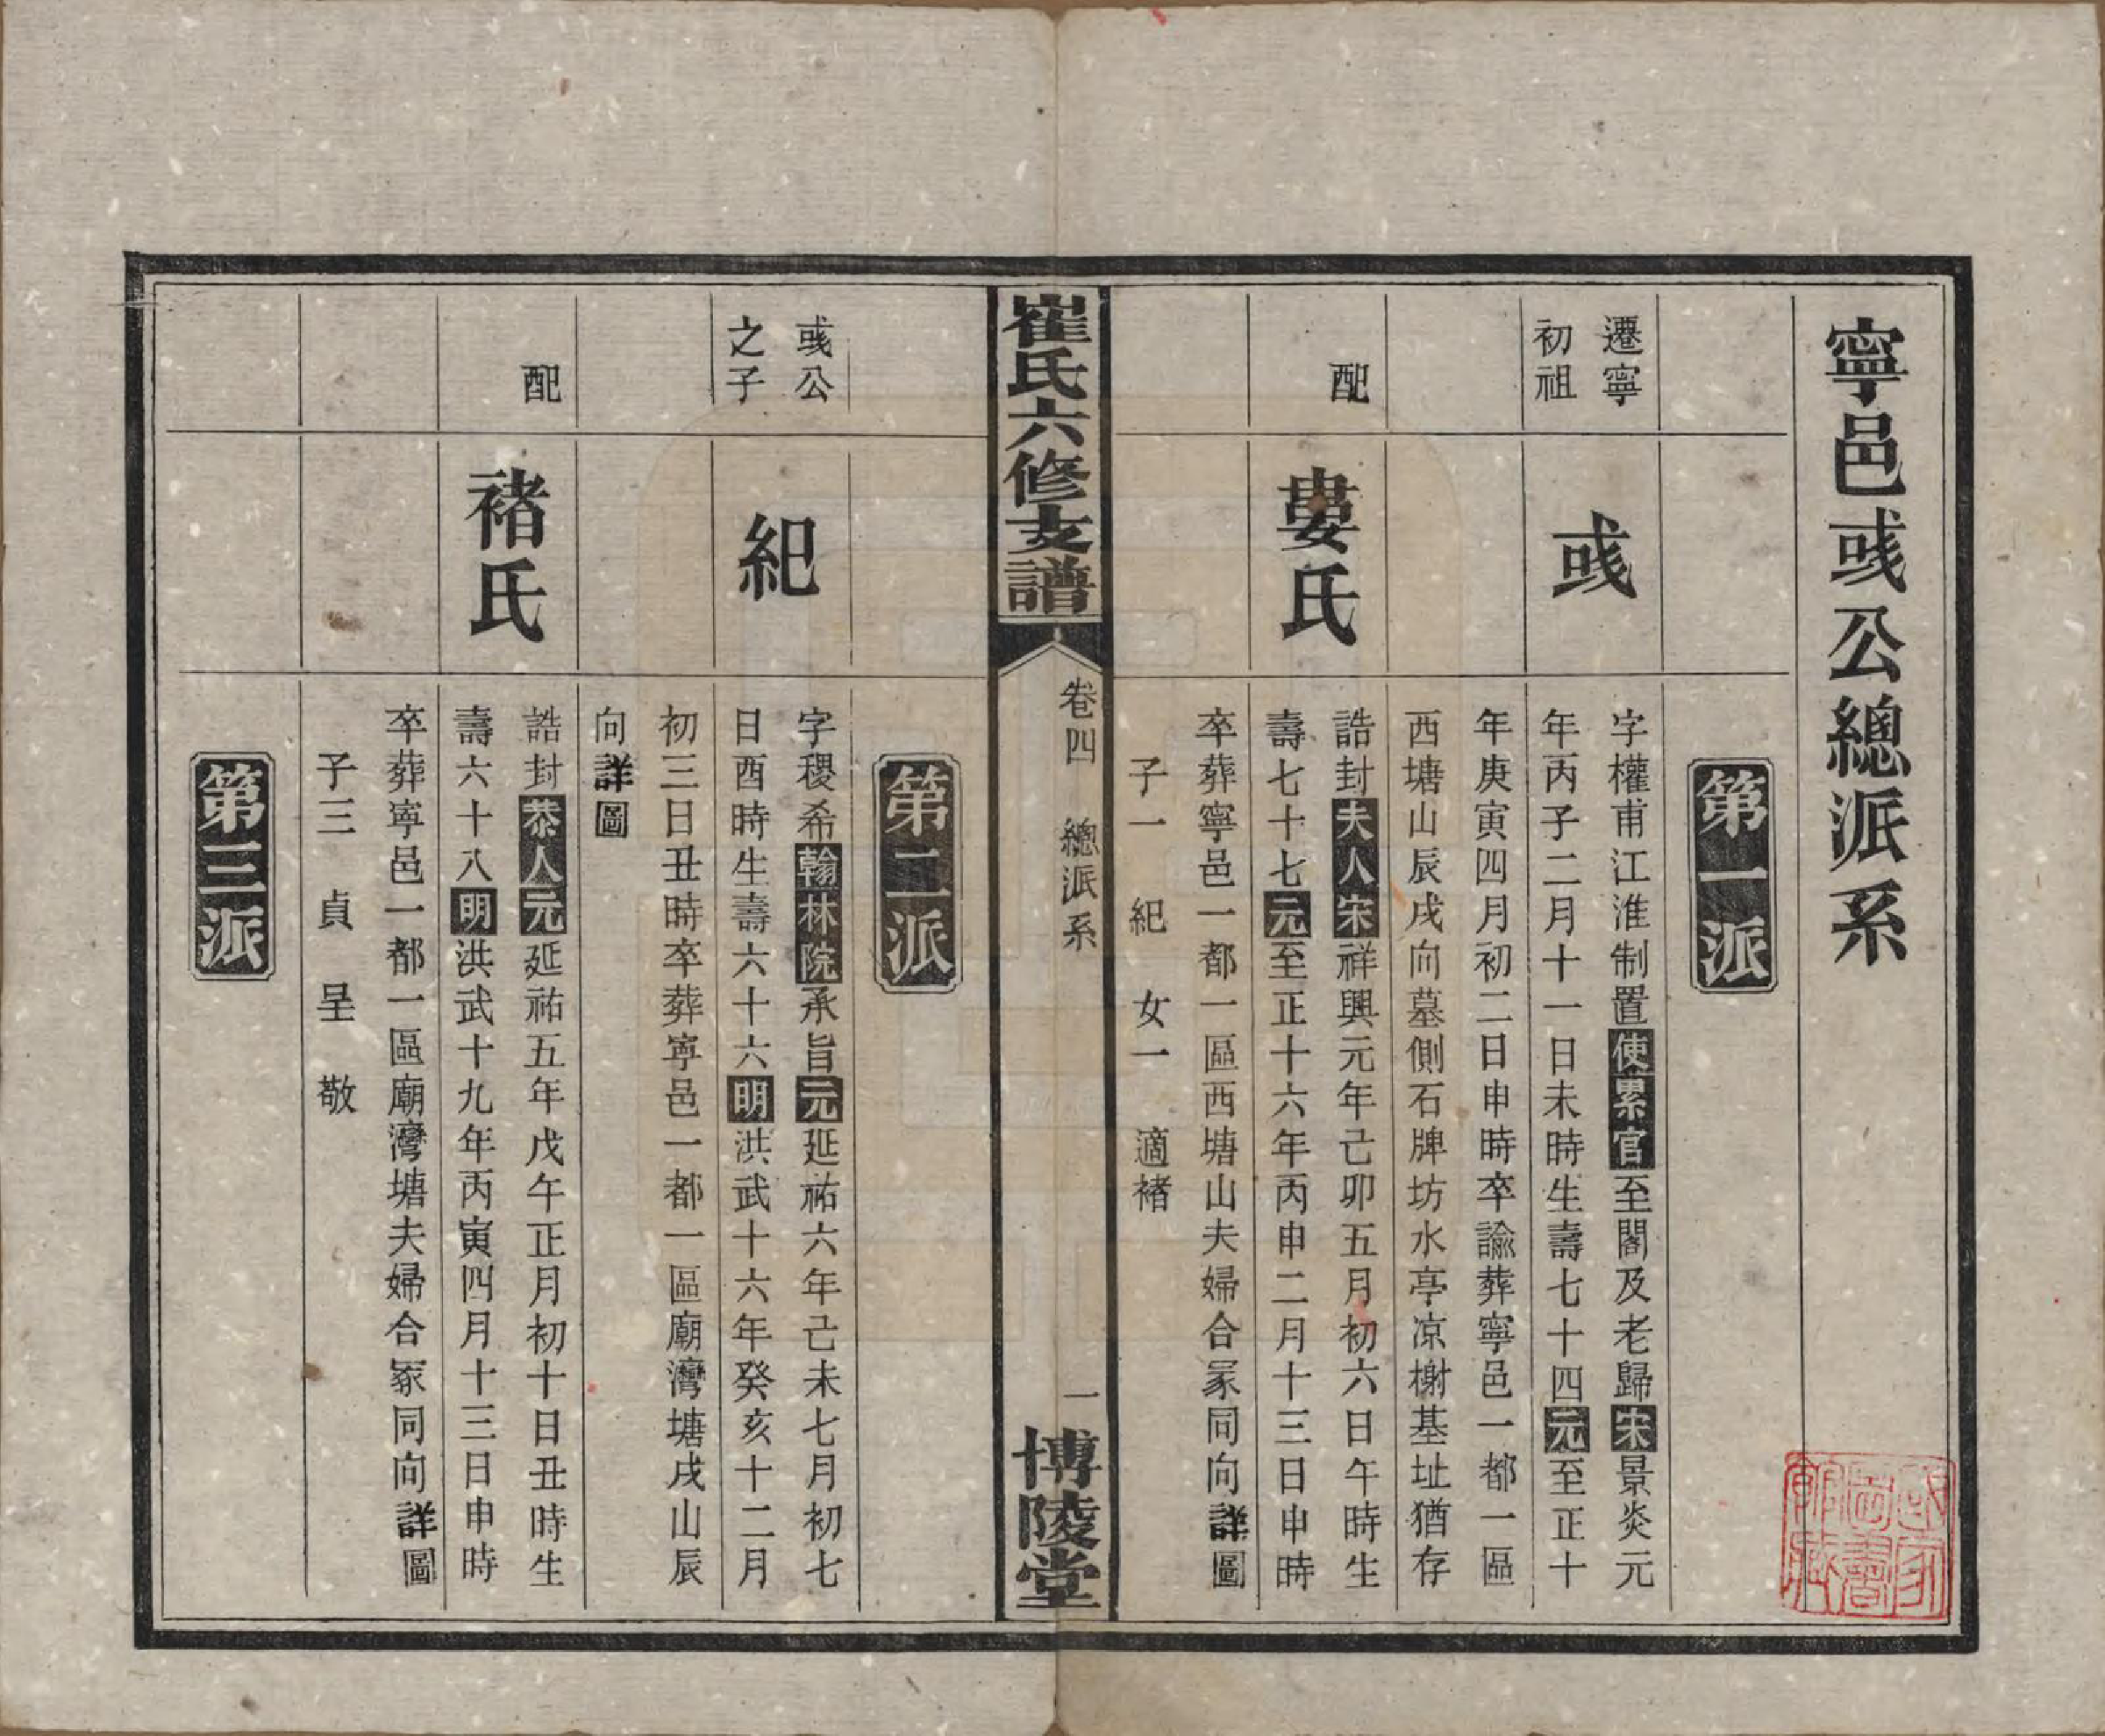 寧邑彧公總派系
第一派
遷寧
初祖
彧
字權甫江淮制置使累官至閣及老歸宋景炎元
年丙子二月十一日未時生壽七十四元至正十
年庚寅四月初二日申時卒諭葬寧邑一都一區
西塘山辰戌向墓側石牌坊水亭凉榭基址猶存
配
婁氏
誥封夫人宋祥興元年己卯五月初六日午時生
壽七十七元至正十六年丙申二月十三日申時
卒葬寧邑一都一區西塘山夫婦合冢同向詳圖
子一 紀 女一 適褚
崔氏六修支譜
卷四 總派系
一
博陵堂
第二派
彧公
之子
紀
字稷希翰林院承旨元延祐六年己未七月初七
日酉時生壽六十六明洪武十六年癸亥十二月
初三日丑時卒葬寧邑一都一區廟灣塘戌山辰
向詳圖
配
褚氏
誥封恭人元延祐五年戊午正月初十日丑時生
壽六十八明洪武十九年丙寅四月十三日申時
卒葬寧邑一都一區廟灣塘夫婦合冢同向詳圖
子三 貞 呈 敬
第三派